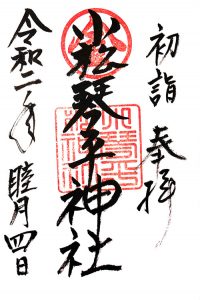 初詣 奉拝
小松琴平神社
令和二年 睦月四日